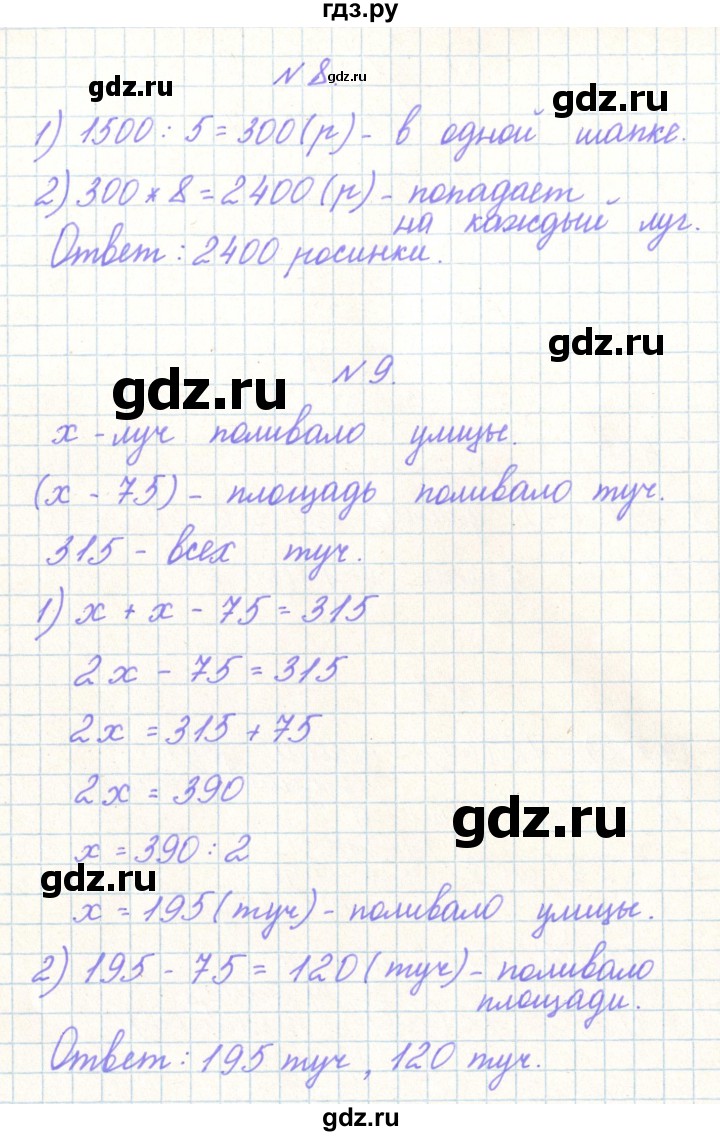 гдз.ру
gdz.ru
№ 8
gdz.ru
gdz.ru
1) 1500 : 5 = 300 (р) - в одной шапке.
2) 300 * 8 = 2400 (р) - попадает
на каждый луг.
Ответ : 2400 росинки.
gdz.ru
№ 9.
gdz.ru
х - луч поливало улицы.
(х - 75) - площадь поливало туч.
315 - всех туч.
1) х + х - 75 = 315
2х - 75 = 315
2х = 315 + 75
2х = 390
gdz.ru
х = 390 : 2
gdz.ru
х = 195 (туч) - поливало улицы.
2) 195 - 75 = 120 (туч) - поливало
площади.
Ответ : 195 туч , 120 туч.
gdz.ru